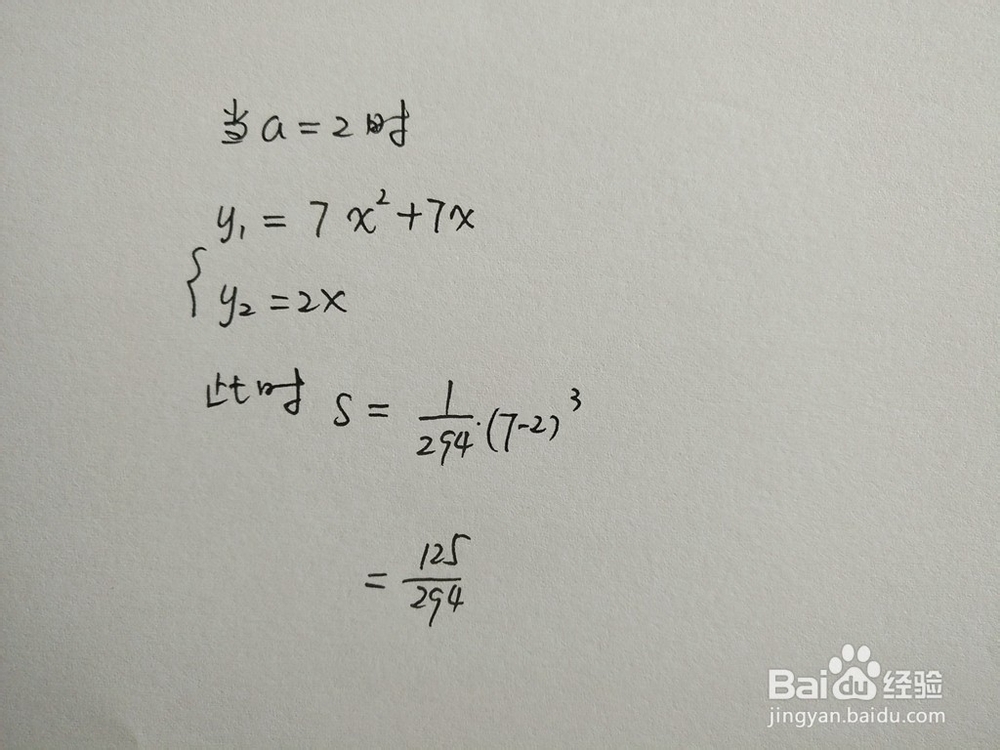 当a=2时
y₁=7x²+7x
{y₂=2x
此时 S=1/294·(7-2)³
=125/294
Baidu经验
jingyan.baidu.com